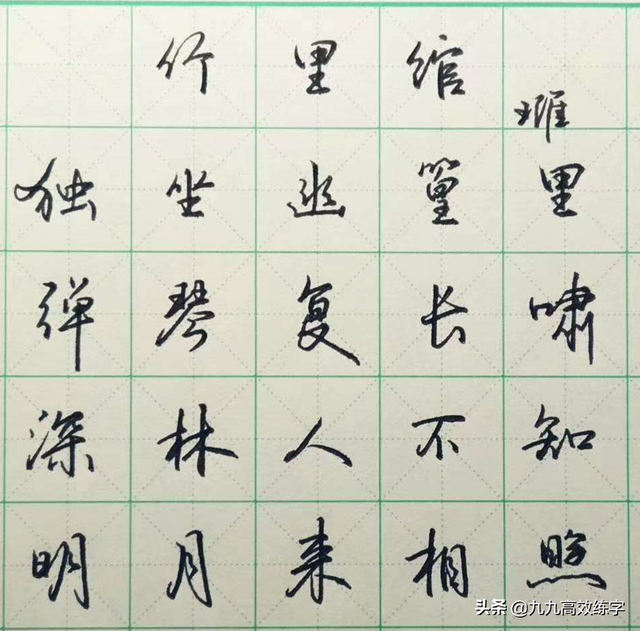 竹里绾
王维
独坐幽篁里
弹琴复长啸
深林人不知
明月来相照
头条 @九九高效练字